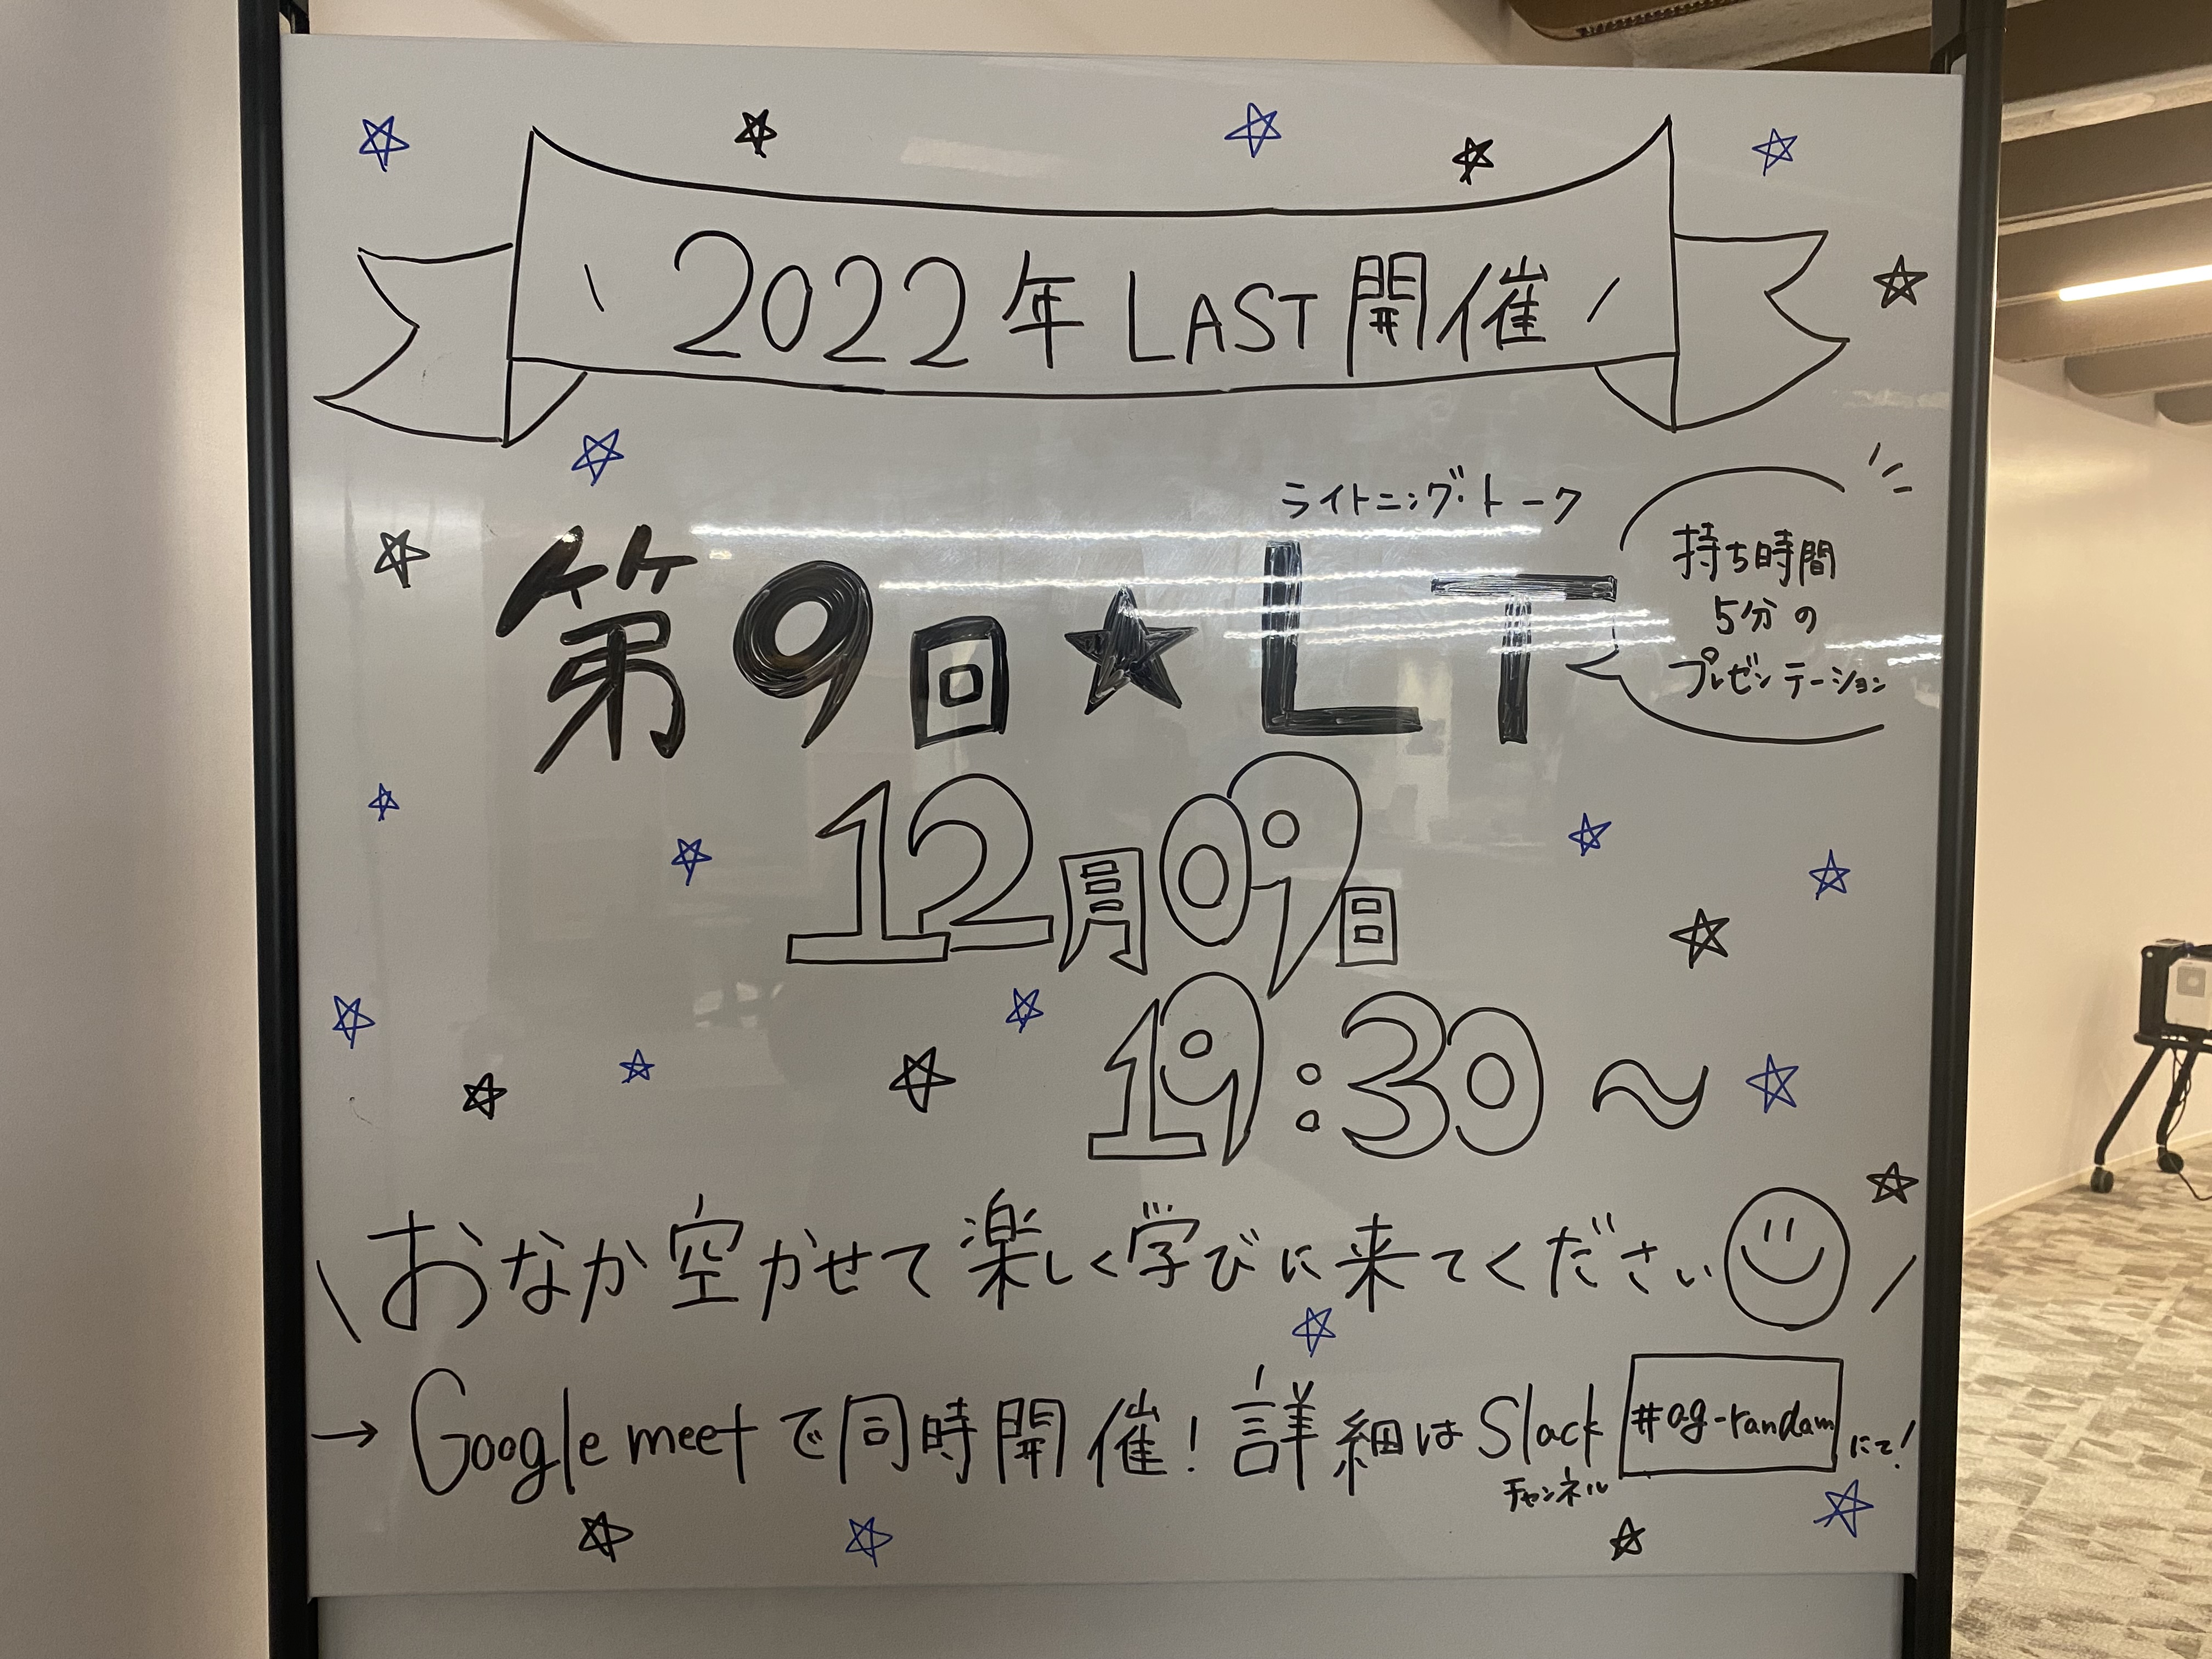 \ 2022年 LAST 開催 /
ライトニング・トーク
第9回★LT
持ち時間
5分の
プレゼンテーション
12月09日
19:30〜
\ おなか空かせて楽しく学びに来てください /
→ Google meetで同時開催! 詳細はSlack #ag-randam にて!
チャンネル